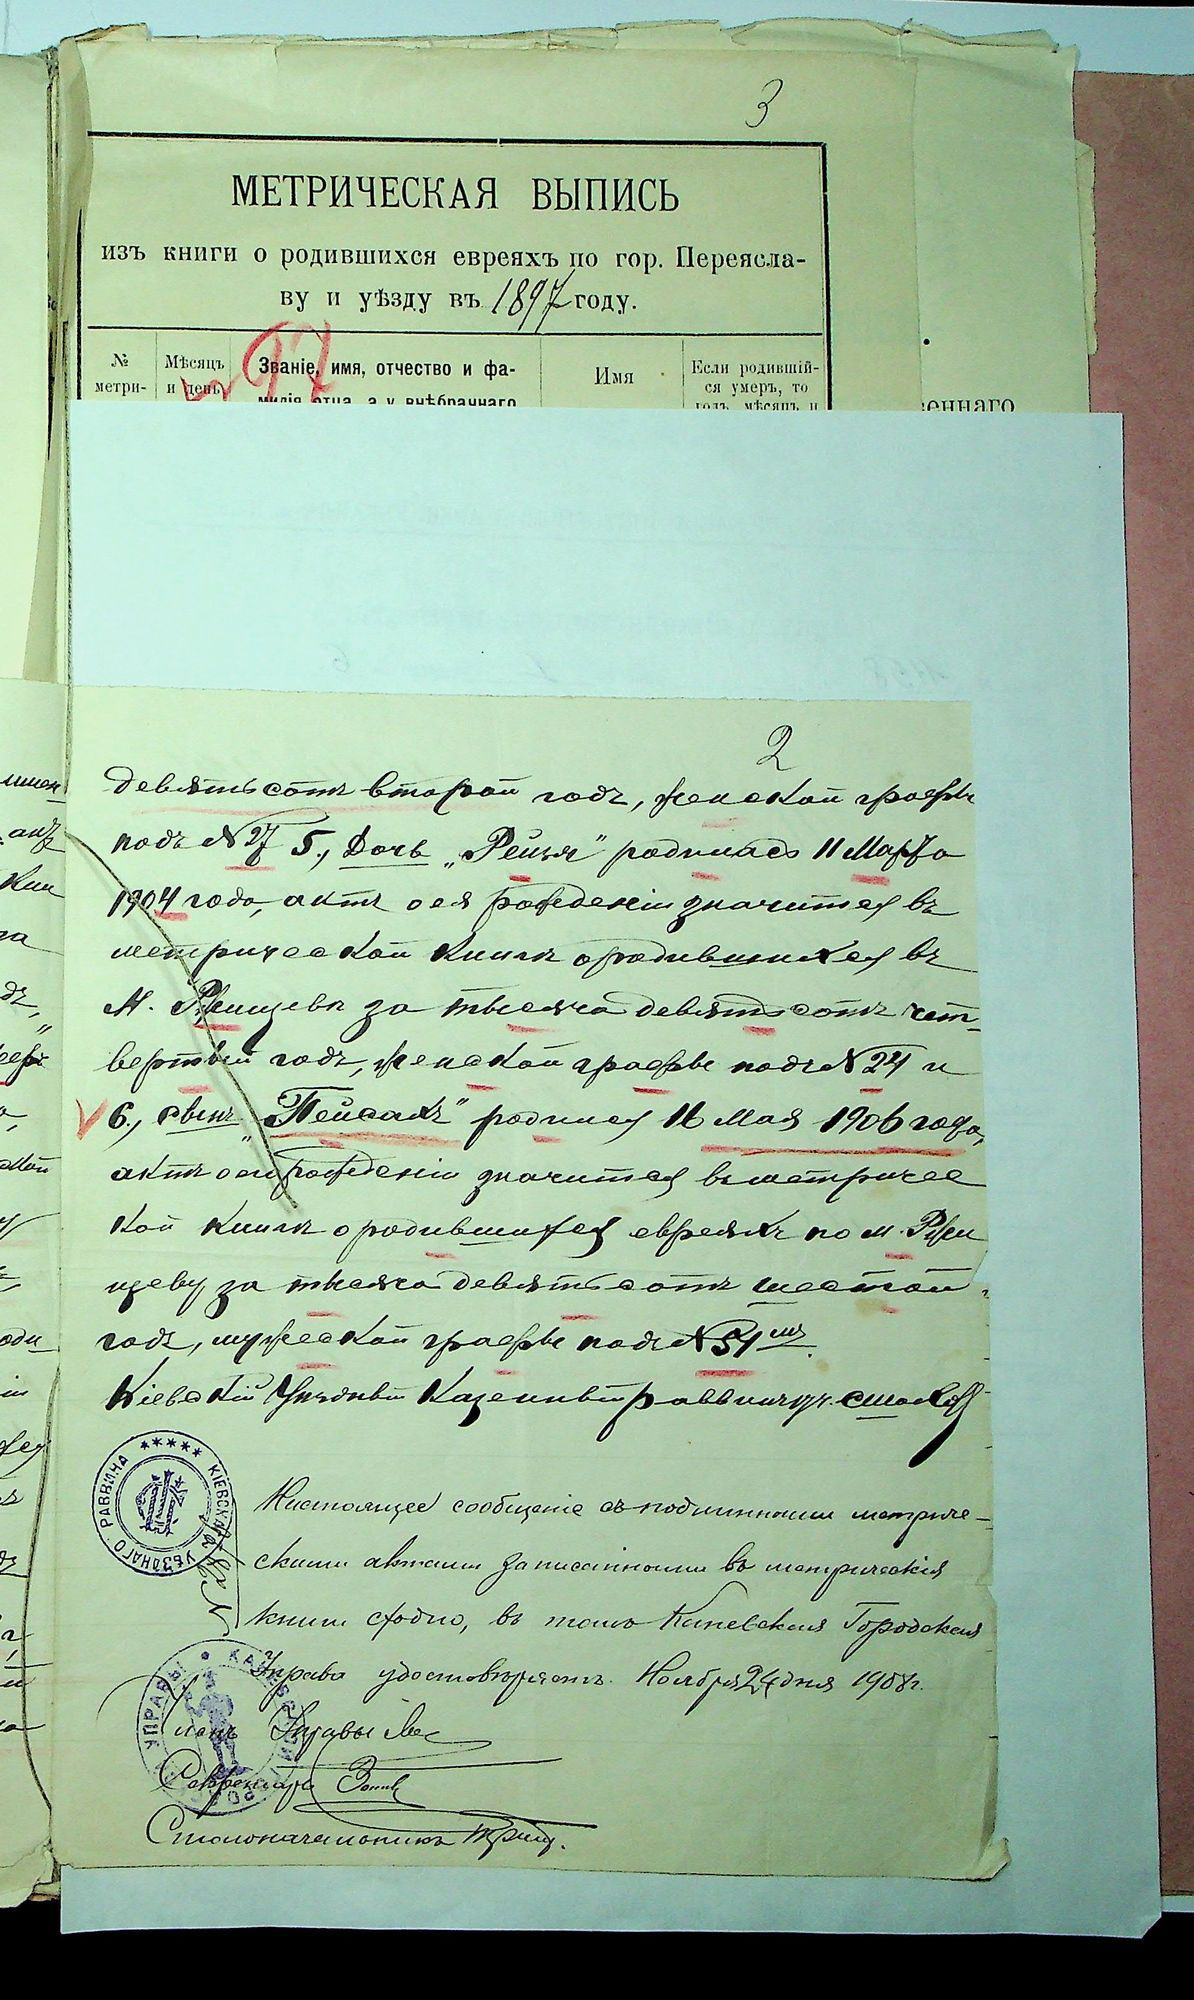 3
МЕТРИЧЕСКАЯ ВЫПИСЬ
изъ книги о родившихся евреяхъ по гор. Переясла-
ву и уѣзду въ 1897 году.
97
№ метри-
Мѣсяцъ и день
Званіе, имя, отчество и фа-
милія отца, а у внѣбрачнаго
Имя
Если родившій-
ся умеръ, то
годъ, мѣсяцъ и
еннаго
2
девятьсотъ второй годъ, женской графѣ
подъ № 27 5, Дочь „Рейзя" родилась 11 Марта
1904 года, актъ о ея рожденіи значится въ
метрической книгѣ о родившихся въ
М. Ржищевѣ за тысяча девятьсотъ чет-
вертый годъ, женской графѣ подъ № 24 и
6, сынъ „Пейсахъ" родился 16 Мая 1906 года,
актъ о его рожденіи значится въ метричес
кой книгѣ о родившихся евреяхъ по м. Ржи
щеву за тысяча девятьсотъ шестой
годъ, мужской графѣ подъ № 51мъ.
Кіевскій Уѣздный Казенный раввинъ
★★★★★ КІЕВСКАГО УѢЗДНАГО РАВВИНА
Настоящее сообщеніе съ подлинными метриче-
скими актами записанными въ метрическія
книги сходно, въ томъ Каневская Городская
Управа удостовѣряетъ. Ноября 24 дня 1908 г.
Членъ Управы
Секретарь
Столоначальникъ